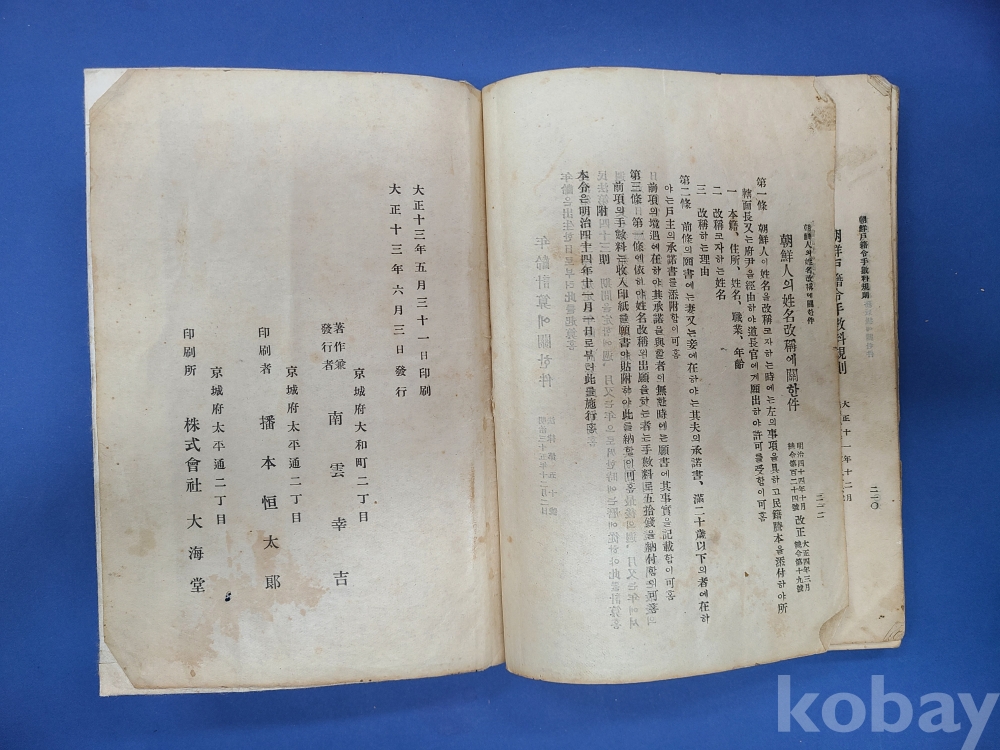 朝鮮戶籍令手數料規則
二二〇
朝鮮戶籍令手數料規則
大正十一年十二月
朝鮮人의姓名改稱에關한件
二二二
朝鮮人의姓名改稱에關한件
明治四十四年十月
總令第百二十四號
改正
大正四年三月
總令第十九號
第一條 朝鮮人이姓名을改稱코자하는時에는左의事項을具하고民籍謄本을添付하야所
轄面長又는府尹을經由하야道長官에게願出하야許可를受함이可홈
一 本籍、住所、姓名、職業、年齡
二 改稱코자하는姓名
三 改稱하는理由
第二條 前條의願書에는妻又는妾에在하야는其夫의承諾書、滿二十歲以下의者에在하
야는戶主의承諾書를添附함이可홈
前項의境遇에在하야其承諾을與할者의無한時에는願書에其事實을記載함이可홈
第三條 第一條에依하야姓名改稱의出願을하는者는手數料로五拾錢을納付함이可홈
前項의手數料는收入印紙를願書에貼附하야此를納함이可홈
附則
本令은明治四十四年十一月一日로부터此를施行홈
大正十三年五月三十一日印刷
大正十三年六月三日發行
京城府大和町二丁目
著作兼
發行者 南雲幸吉
京城府太平通二丁目
印刷者 播本恒太郎
京城府太平通二丁目
印刷所 株式會社 大海堂
kobay